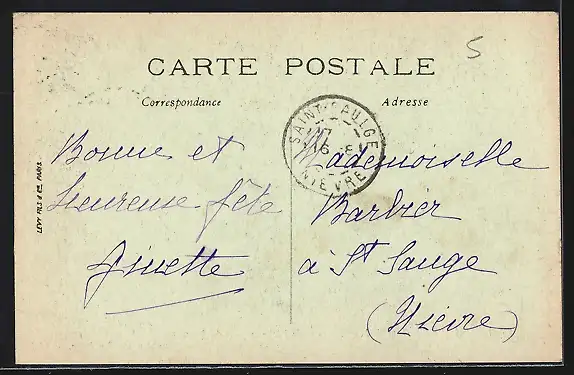 5
CARTE POSTALE
Correspondance
Adresse
SAINT-SAULGE
NIÈVRE
Bonne et
heureuse fête
Ginette
Mademoiselle
Barbier
à St Sauge
(Nièvre)
LÉVY FILS & Cie, PARIS